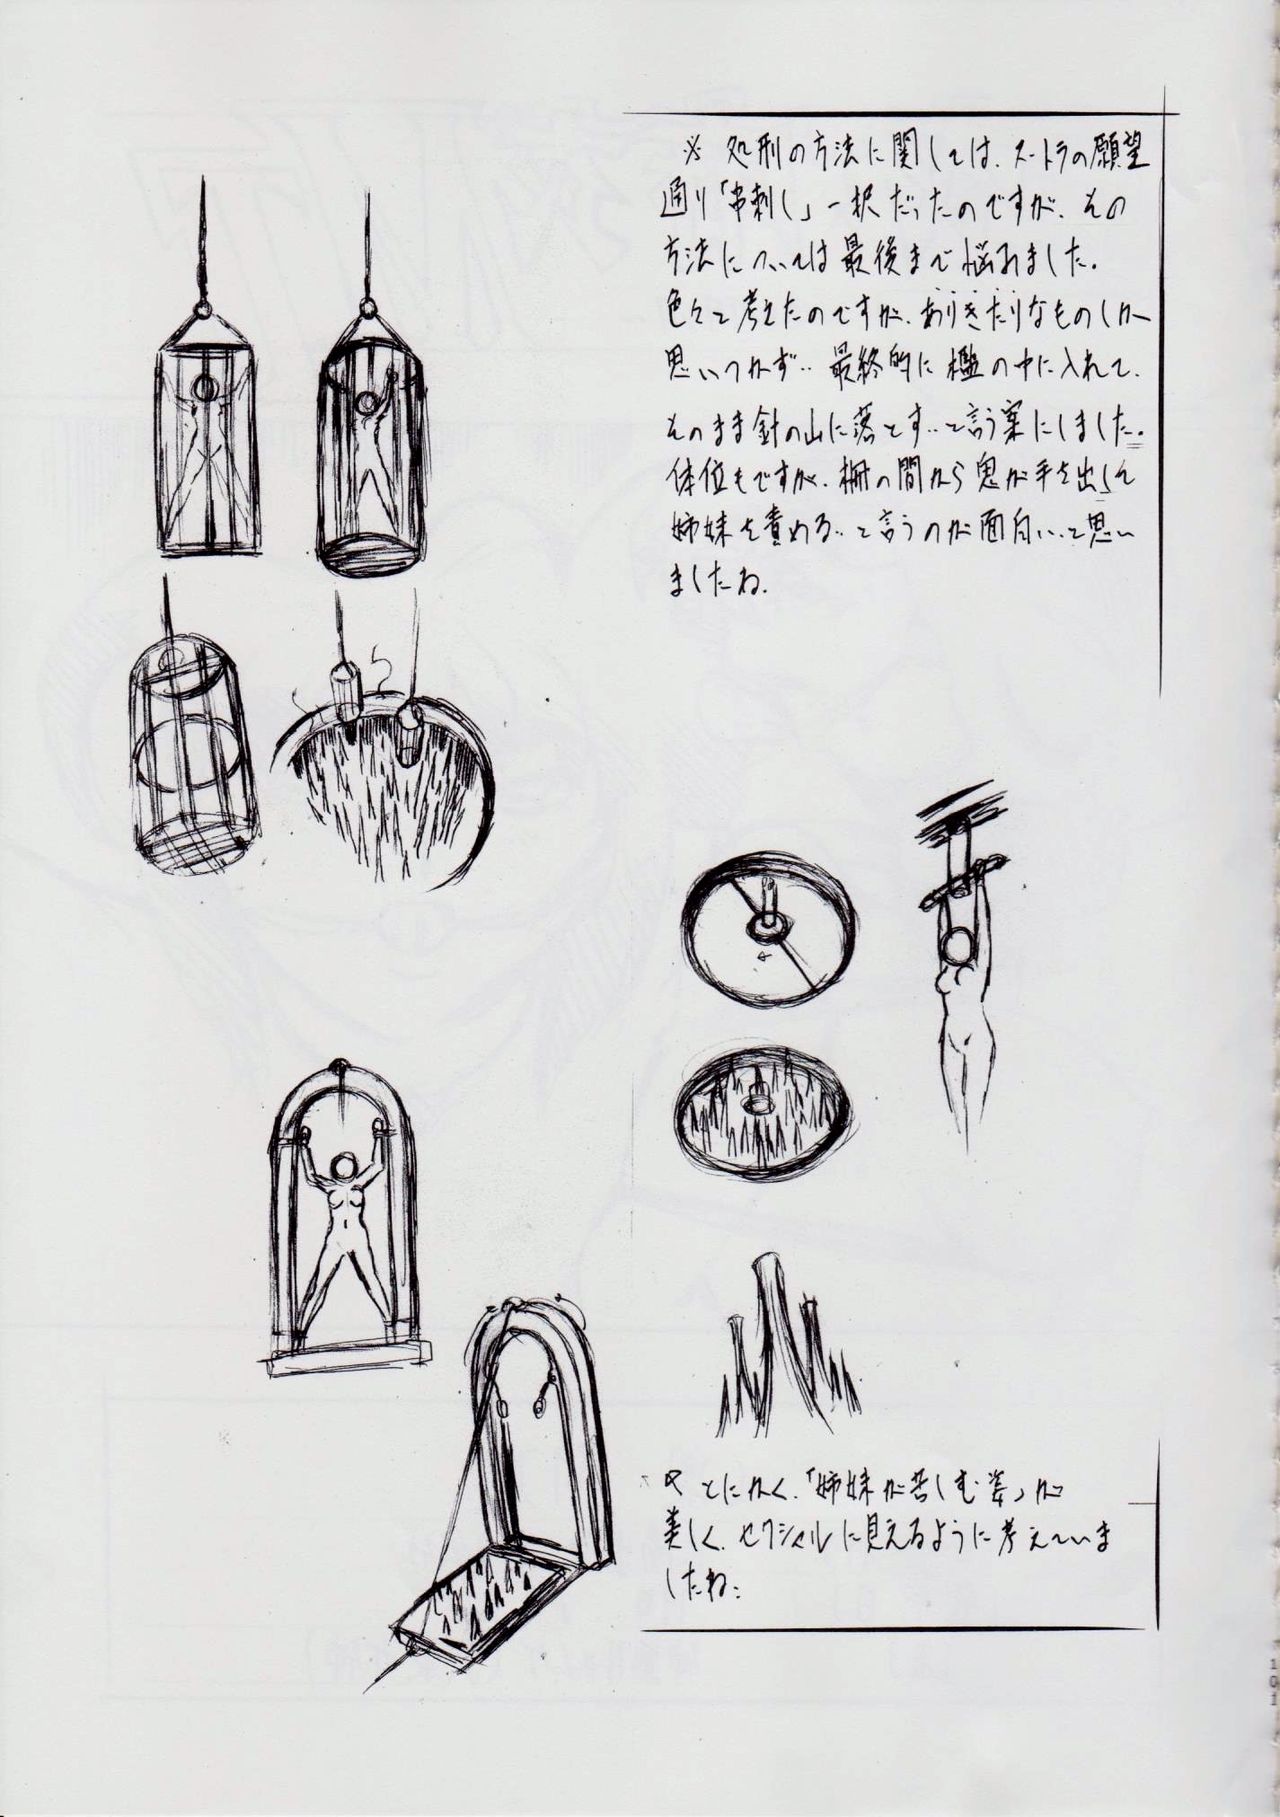 ※ 処刑の方法に関しては、スートラの願望
通り「串刺し」一択だったのですが、その
方法については最後まで悩みました。
色々と考えたのですが、ありきたりなものしか
思いつかず‥最終的に檻の中に入れて、
そのまま針の山に落とす‥と言う案にしました。
体位もですが、柵の間から鬼が手を出して
姉妹を責める‥と言うのが面白い‥と思い
ましたね。
とにかく、「姉妹が苦しむ姿」が
美しく、セクシャルに見えるように考えていま
したね‥
101